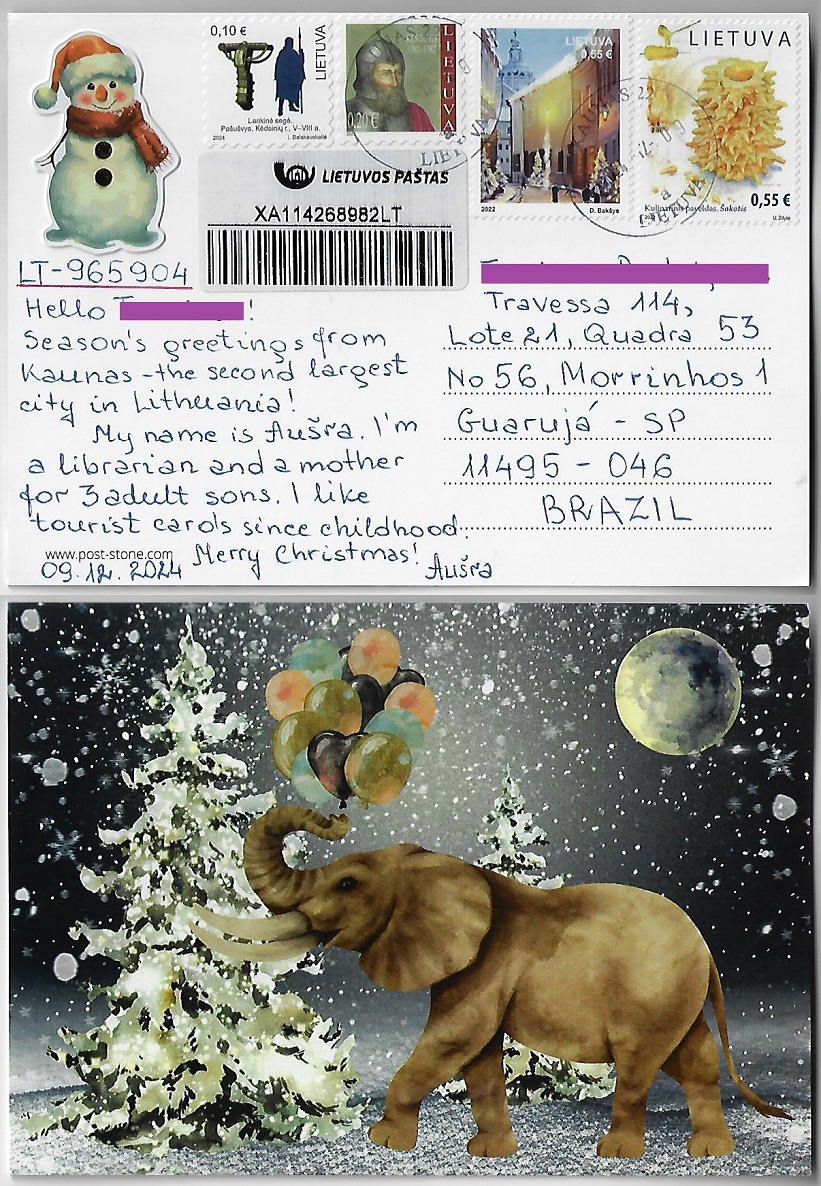 0,10 €
LIETUVA
Lankinė segė.
Pašušvys, Kėdainių r., V–VIII a.
2024
I. Balakauskaitė
KĘSTUTIS
1381-1382
LIETUVA
0,20 €
LIETUVA
0,55 €
2022
D. Bakšys
LIETUVA
Kulinarinis paveldas. Šakotis
0,55 €
U. Žilytė
KAUNAS 22
LIETUVA
LIETUVOS PAŠTAS
XA114268982LT
LT-965904
Hello !
Season's greetings from
Kaunas - the second largest
city in Lithuania!
My name is Aušra. I'm
a librarian and a mother
for 3 adult sons. I like
tourist cards since childhood.
Merry Christmas!
www.post-stone.com
09.12.2024
Aušra
Travessa 114,
Lote 21, Quadra 53
No 56, Morrinhos 1
Guarujá - SP
11495 - 046
BRAZIL